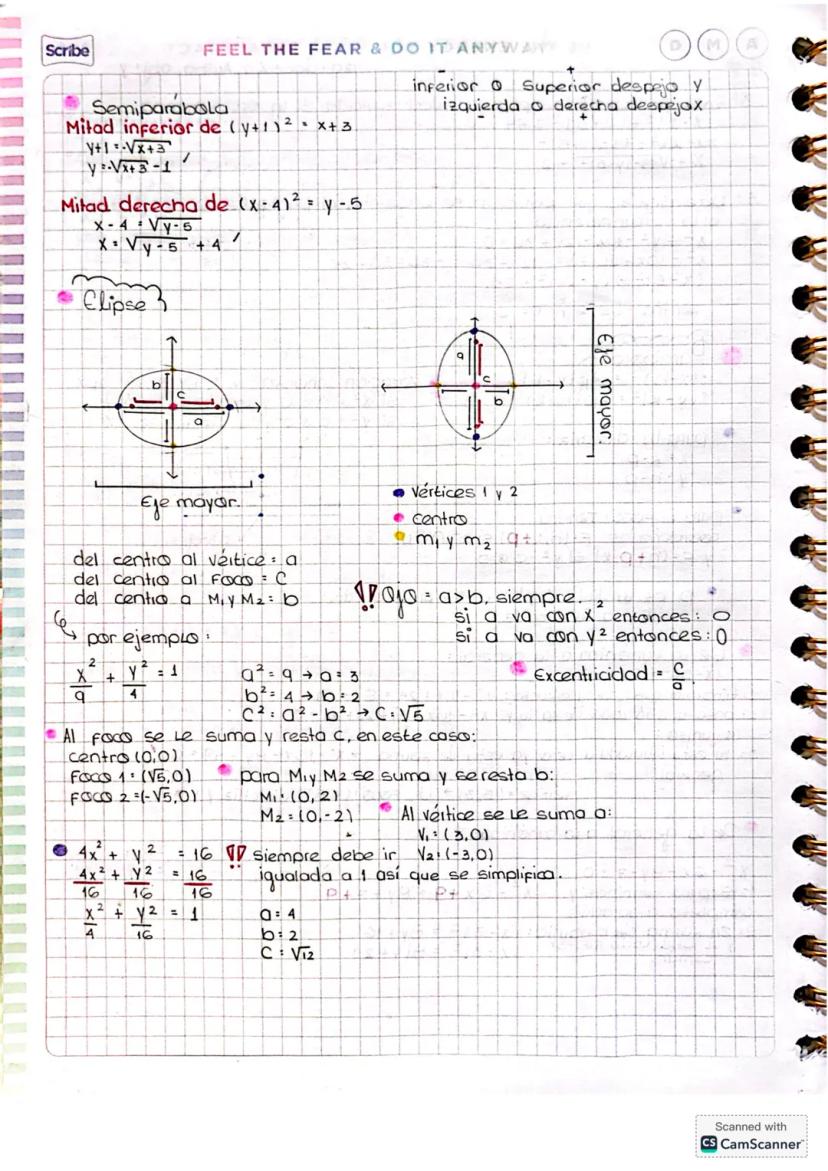 Scribe
FEEL THE FEAR & DO IT ANYWAY
D M A
- +
inferior o superior despejo y
izquierda o derecha despejo x
- +
Semiparábola
Mitad inferior de (y+1)² = x+3
y+1 = -√x+3
y = -√x+3 - 1
Mitad derecha de (x-4)² = y-5
x-4 = √y-5
x = √y-5 + 4
Elipse
b
c
a
Eje mayor.
a
c
b
Eje mayor.
Vértices 1 y 2
centro
m₁ y m₂
del centro al vértice = a
del centro al Foco = C
del centro a M₁ y M₂ = b
!! Ojo = a>b, siempre.
si a va con x² entonces: 0
si a va con y² entonces: 0
por ejemplo:
x²/9 + y²/4 = 1
a² = 9 → a = 3
b² = 4 → b = 2
C² = a² - b² → C = √5
Excentricidad = c/a.
Al foco se le suma y resta c, en este caso:
centro (0,0)
Foco 1 = (√5,0)
Foco 2 = (-√5,0)
para M₁ y M₂ se suma y se resta b:
M₁ = (0, 2)
M₂ = (0,-2)
Al vértice se le suma a:
V₁ = (3,0)
V₂ = (-3,0)
4x² + y² = 16
!! siempre debe ir
igualada a 1 así que se simplifica.
4x²/16 + y²/16 = 16/16
x²/4 + y²/16 = 1
a = 4
b = 2
C = √12
Scanned with
CS CamScanner